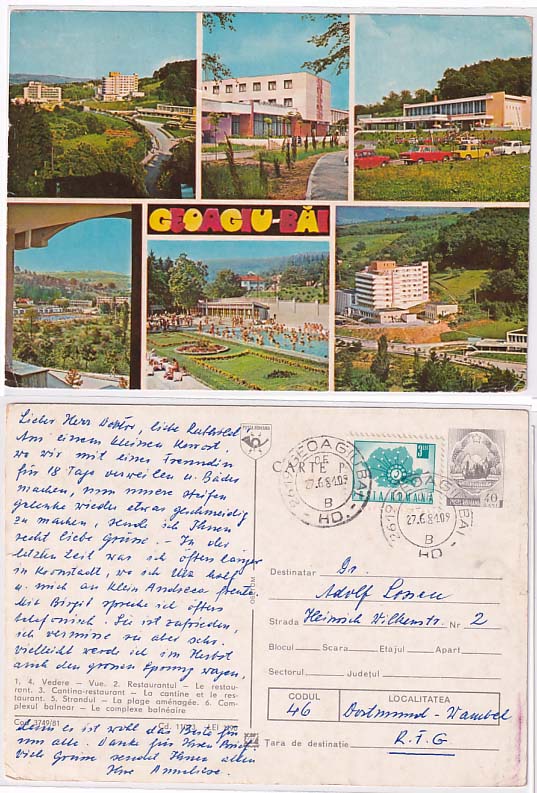 GEOAGIU-BĂI
Lieber Herr Doktor, liebe
Aus einem kleinen Kurort,
wo wir mit einer Freundin
für 18 Tage verweilen u. Bäder
machen, um unsere steifen
Gelenke wieder etwas geschmeidig
zu machen, sende ich Ihnen
recht liebe Grüsse. In der
letzten Zeit war ich öfters länger
in Kronstadt, wo ich Uta half
u. mich an klein Andreea freute.
Mit Birgit spreche ich öfters
telefonisch. Sie ist zufrieden,
ich vermisse sie aber sehr.
Vielleicht werde ich im Herbst
auch den grossen Sprung wagen,
1, 4. Vedere — Vue. 2. Restaurantul — Le restau-
rant. 3. Cantina-restaurant — La cantine et le res-
taurant. 5. Strandul — La plage aménagée. 6. Com-
plexul balnear — Le complexe balnéaire
Cod 3749/81 Cd. LEI
denn es ist wohl das Beste für
uns alle. Danke für Ihren Brief,
viele Grüsse sendet Ihnen allen
Ihre Anneliese.
POSTA ROMANA
CARTE P
GEOAGIU BAI
27.6.84.09
B
HD.
3 LEI
POSTA ROMANA
GEOAGIU BAI
27.6.84.09
B
HD.
40
Destinatar Dr.
Adolf
Strada Heinrich Wilkenstr. Nr 2
Blocul Scara Etajul Apart.
Sectorul Județul
CODUL LOCALITATEA
46 Dortmund-Wambel
Țara de destinație R.F.G.